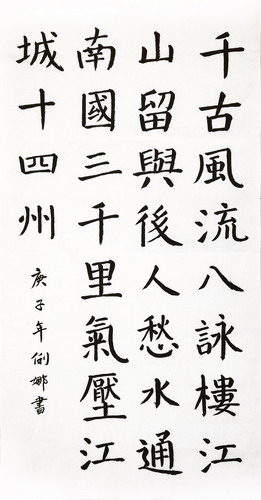 千古風流八詠樓江
山留與後人愁水通
南國三千里氣壓江
城十四州
庚子年俐娜書